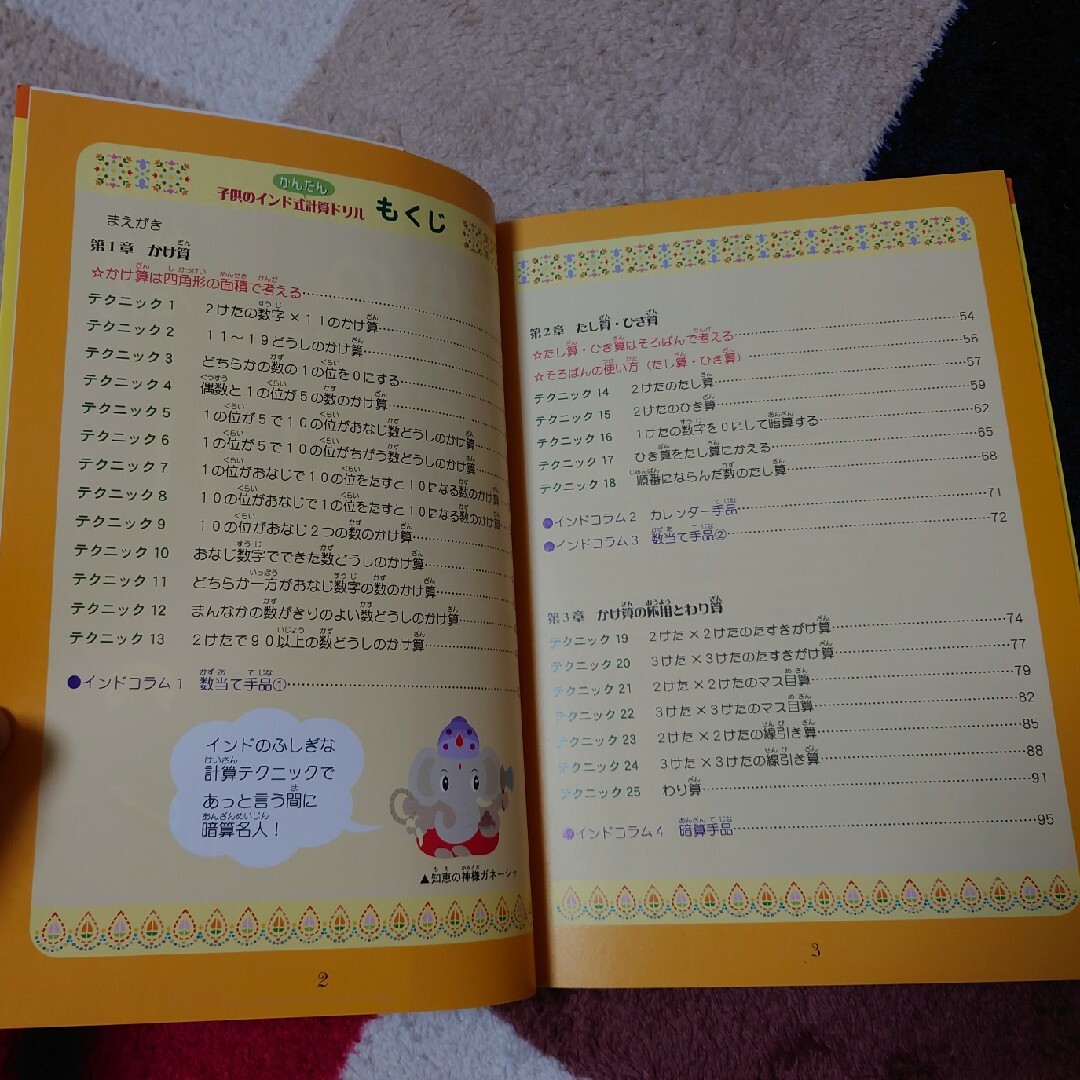 かんたん
子供のインド式計算ドリル もくじ
まえがき
第1章 かけ算
☆かけ算は四角形の面積で考える
テクニック1 2けたの数字×11のかけ算
テクニック2 11〜19どうしのかけ算
テクニック3 どちらかの数の1の位を0にする
テクニック4 偶数と1の位が5の数のかけ算
テクニック5 1の位が5で10の位がおなじ数どうしのかけ算
テクニック6 1の位が5で10の位がちがう数どうしのかけ算
テクニック7 1の位がおなじで10の位をたすと10になる数のかけ算
テクニック8 10の位がおなじで1の位をたすと10になる数のかけ算
テクニック9 10の位がおなじ2つの数のかけ算
テクニック10 おなじ数字でできた数どうしのかけ算
テクニック11 どちらか一方がおなじ数字の数のかけ算
テクニック12 まんなかの数がきりのよい数どうしのかけ算
テクニック13 2けたで90以上の数どうしのかけ算
●インドコラム1 数当て手品①
インドのふしぎな
計算テクニックで
あっと言う間に
暗算名人!
▲知恵の神様ガネーシャ
2
第2章 たし算・ひき算
☆たし算・ひき算はそろばんで考える 54
☆そろばんの使い方(たし算・ひき算) 56
テクニック14 2けたのたし算 57
テクニック15 2けたのひき算 59
テクニック16 1けたの数字を0にして暗算する 62
テクニック17 ひき算をたし算にかえる 65
テクニック18 順番にならんだ数のたし算 68
●インドコラム2 カレンダー手品 71
●インドコラム3 数当て手品② 72
第3章 かけ算の応用とわり算
テクニック19 2けた×2けたのたすきがけ算 74
テクニック20 3けた×3けたのたすきがけ算 77
テクニック21 2けた×2けたのマス目算 79
テクニック22 3けた×3けたのマス目算 82
テクニック23 2けた×2けたの線引き算 85
テクニック24 3けた×3けたの線引き算 88
テクニック25 わり算 91
●インドコラム4 暗算手品 95
3